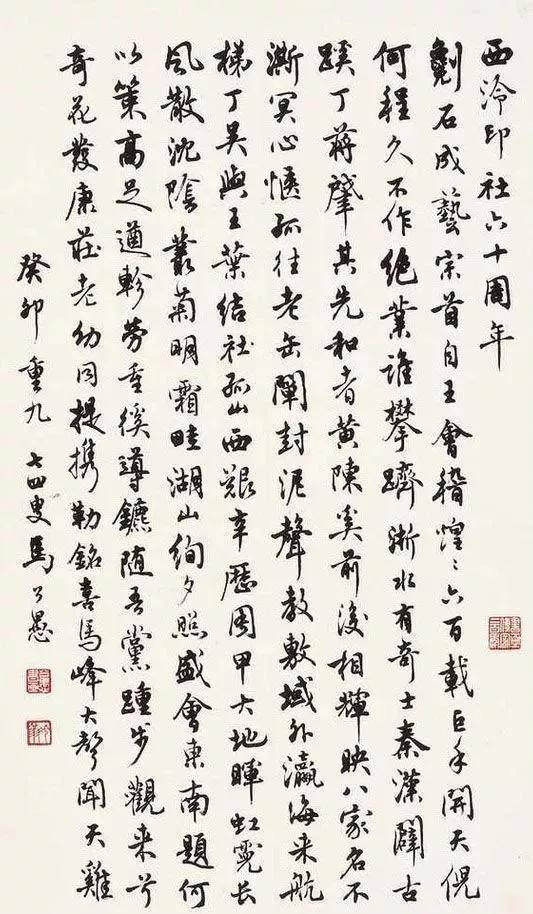 西泠印社六十周年
劖石成藝宗首自王會稽煌〻六百載巨手開天倪
何程久不作絶業誰攀躋浙水有奇士秦漢闢古
蹊丁蔣肇其先和者黄陳奚前後相輝映八家名不
澌冥心愜孤往老缶闡封泥聲教敷域外瀛海来航
梯丁吴與王葉結社孤山西艱辛歷周甲大地暉虹霓长
風散沈陰叢菊明霜畦湖山絢夕照盛會東南題何
以策高足遒軫勞重徯導鑣随吾黨踵步觀来兮
奇花發康莊老幼同提携勒銘喜馬峰大聲聞天雞
癸卯重九 七四叟馬公愚